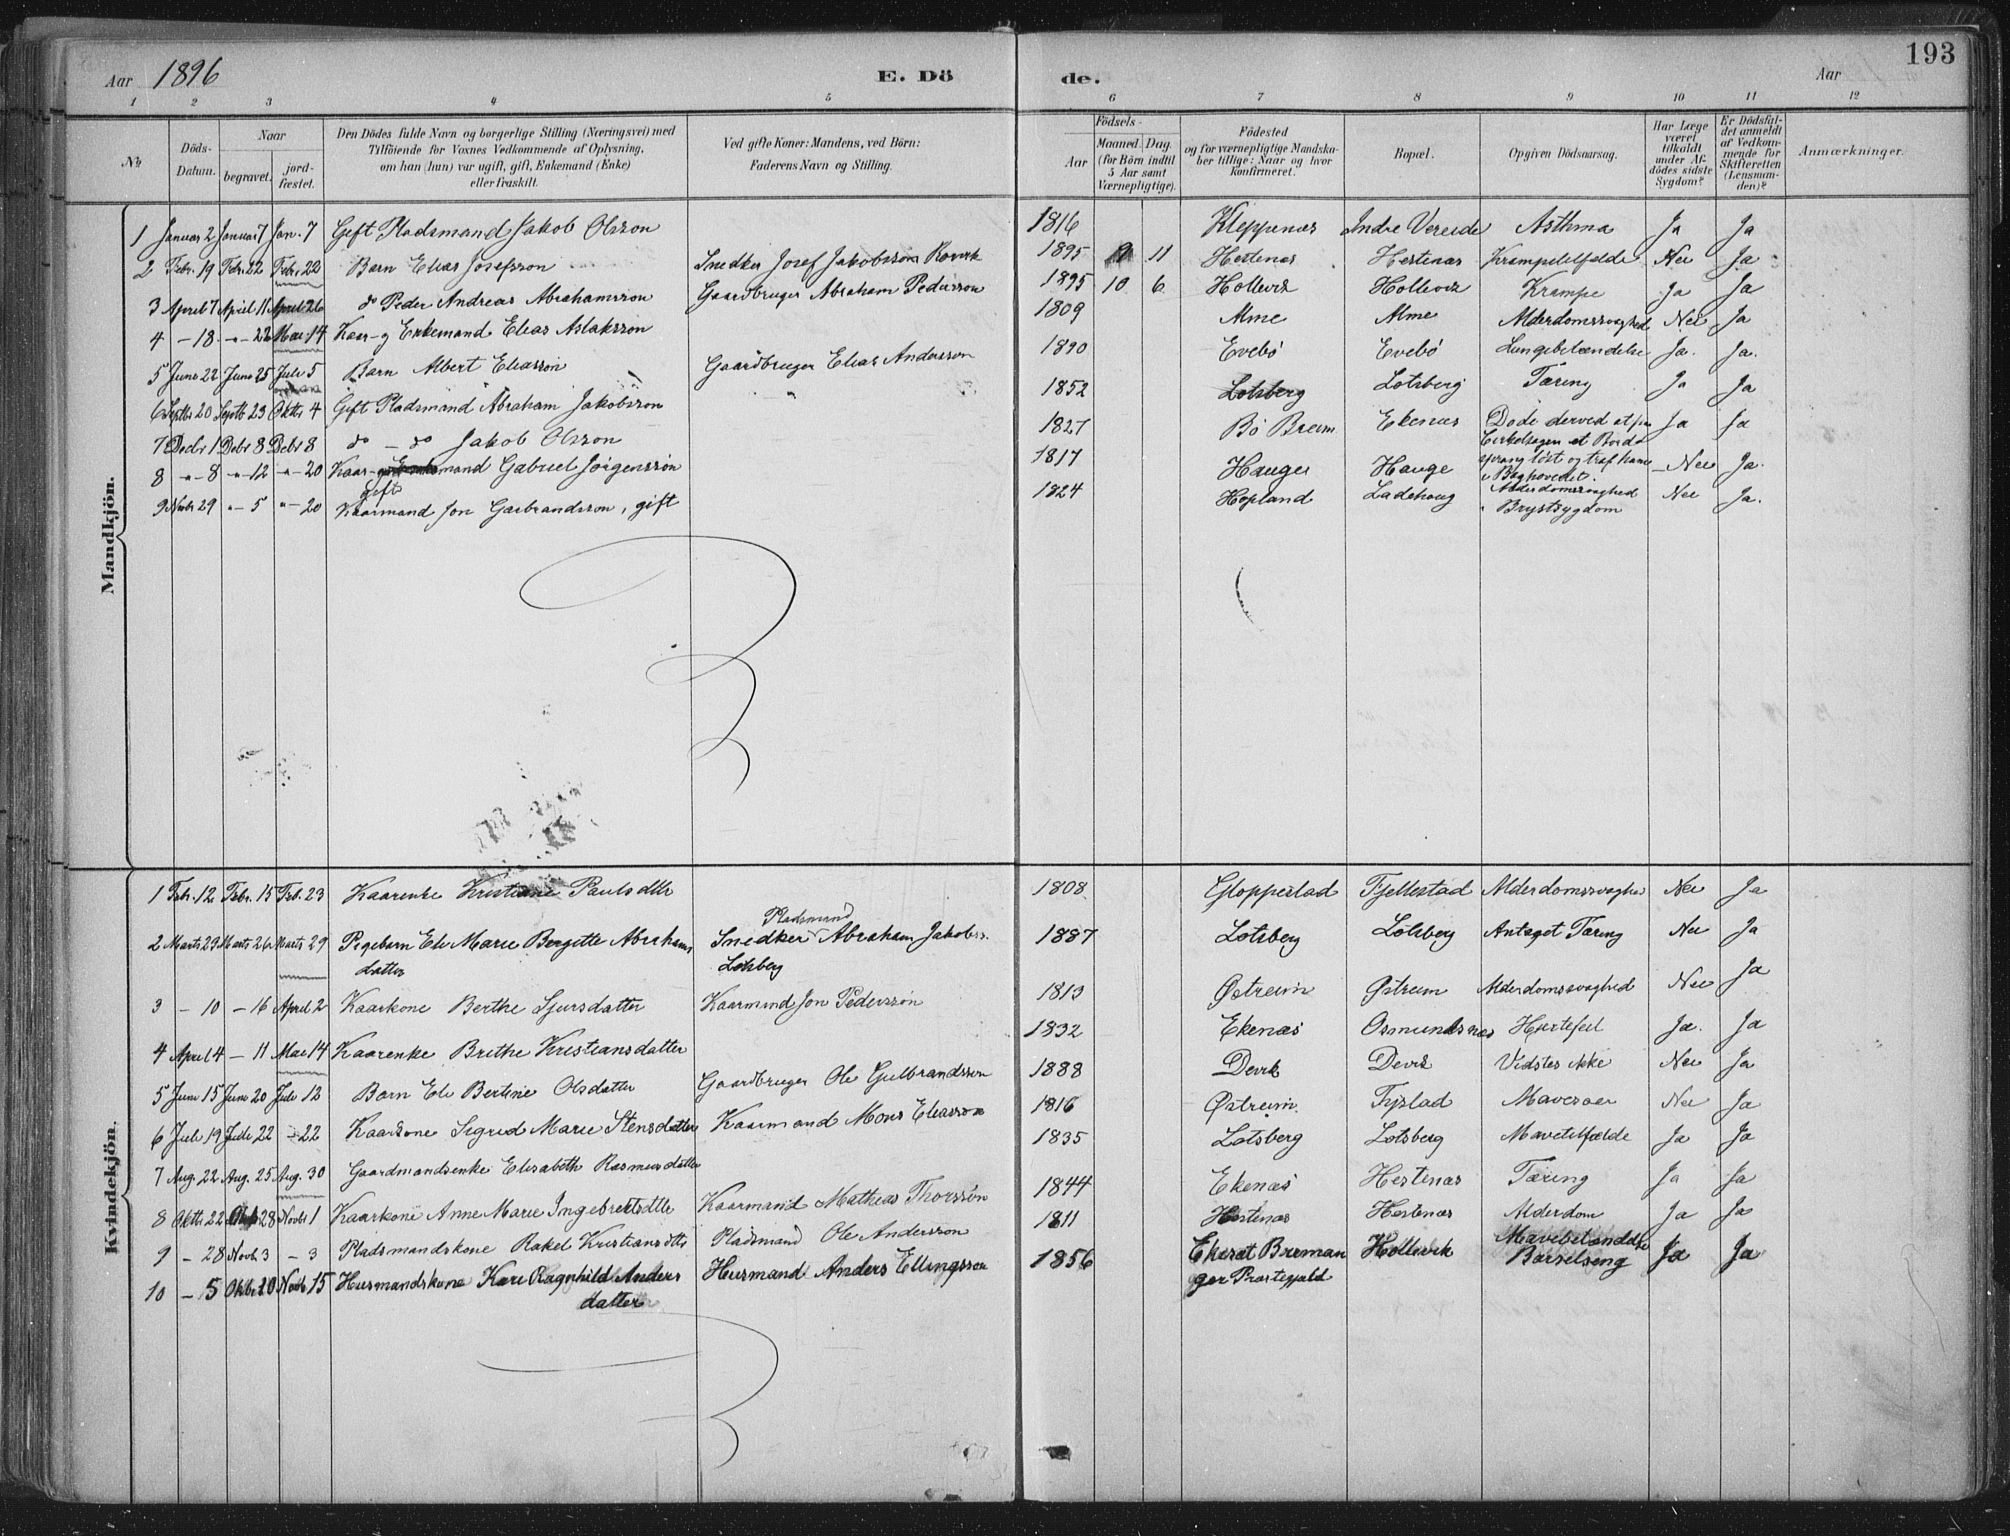 193
Aar 1896 E. Dö de. Aar
1 2 3 4 5 6 7 8 9 10 11 12
No
Döds-Datum.
Naar begravet. jordfæstet.
Den Dödes fulde Navn og borgerlige Stilling (Næringsvei) med Tilföiende for Voxnes Vedkommende af Oplysning, om han (hun) var ugift, gift, Enkemand (Enke) eller fraskilt.
Ved gifte Koner: Mandens, ved Börn: Faderens Navn og Stilling.
Födsels-
Aar Maaned. Dag. (for Börn indtil 5 Aar samt Værnepligtige).
Födested og for værnepligtige Mandskaber tillige: Naar og hvor konfirmeret.
Bopæl.
Opgiven Dödsaarsag.
Har Læge været tilkaldt under Afdödes sidste Sygdom?
Er Dödsfaldet anmeldt af Vedkommende for Skifteretten (Lensmanden)?
Anmærkninger.
Mandkjön.
1 Januar 2 Januar 7 Jan. 7 Gift Pladsmand Jakob Olsson 1816 Kleppenæs Indre Vereide Asthma Ja Ja
2 Febr. 19 Febr. 22 Febr 22 Barn Elias Josefsson Snedker Josef Jakobsson 1895 11 Hestenæs Hestenæs Krampetilfælde Nei Ja
3 April 7 April 11 April 26 do Peder Andreas Abrahamsson Gaardbruger Abraham Pedersson 1895 10 6 Hollevik Hollevik Krampe Ja Ja
4 - 18 - " - 22 Mai 14 Kaar- og Enkemand Elias Aslaksson 1809 Alme Alme Alderdomssvaghed Nei Ja
5 Juni 22 Juni 25 Juli 5 Barn Albert Eliasson Gaardbruger Elias Andersson 1890 Evebö Evebö Lungebetændelse Ja. Ja.
6 Septbr 20 Septb 23 Oktbr 4 Gift Pladsmand Abraham Jakobsson 1852 Lotsberg Lotsberg Tæring Ja Ja
7 Decbr 1 Debr 8 Debr 8 do - do Jakob Olsson 1827 Bö Breim Ekenæs Döde derved at fra Cirkelsagen et Bord sprang löst og traf ham i Baghovedet. Ja Ja
8 - " - 8 " - 12 - " - 20 Kaar- gift mand Gabriel Jörgenssön 1817 Hauge Hauge Alderdomssvaghed Nei Ja.
9 Novbr 29 " - 5 " - 20 Kaarmand Jon Garbrandsson, gift 1824 Hopland Ladehaug Brystsygdom Nei Ja.
Kvindekjön.
1 Febr. 12 Febr. 15 Feb. 23 Kaarenke Kristiane Paulsdtr 1808 Gloppestad Fjellestad Alderdomssvaghed Nei Ja
2 Marts 23 Marts 26 Marts 29 Pigebarn Eli Marie Bergitte Abrahams datter Pladsmand Snedker Abraham Jakobs. Lotsberg 1887 Lotsberg Lotsberg Antaget Tæring Nei Ja
3 - 10 - 16 April 2 Kaarkone Berthe Sjursdatter Kaarmand Jon Pedersson 1813 Østreim Østreim Alderdomssvaghed Nei Ja
4 April 4 - 11 Mai 14 Kaarenke Brithe Kristiansdatter 1832 Ekenæs Osmundsnes Hjertefeil Ja. Ja
5 Juni 15 Juni 20 Juli 12 Barn Eli Bertine Olsdatter Gaardbruger Ole Gulbrandsson 1888 Devik Devik Vidstes ikke Nei Ja
6 Juli 19 Juli 22 - 22 Kaarkone Sigrid Marie Stensdatter Kaarmand Mons Eliasson 1816 Østreim Mavesaar Nei Ja
7 Aug. 22 Aug. 25 Aug. 30 Gaardmandsenke Elisabeth Rasmusdatter 1835 Lotsberg Lotsberg Mavetilfælde Ja Ja
8 Oktbr 22 28 Novbr 1 Kaarkone Anne Marie Ingebretsdtr Kaarmand Mathias Thorsson 1844 Ekenæs Hestenæs Tæring Ja Ja
9 - 28 Novb. 3 - 3 Pladsmandskone Rakel Kristiansdtr Pladsmand Ole Andersson 1811 Hestenæs Hestenæs Alderdom Ja Ja
10 - 5 Oktbr 10 Novb 15 Husmandskone Kari Ragnhild Anders datter Husmand Anders Ellingsson 1856 Hollevik Mavebetændelse Barselseng Ja Ja